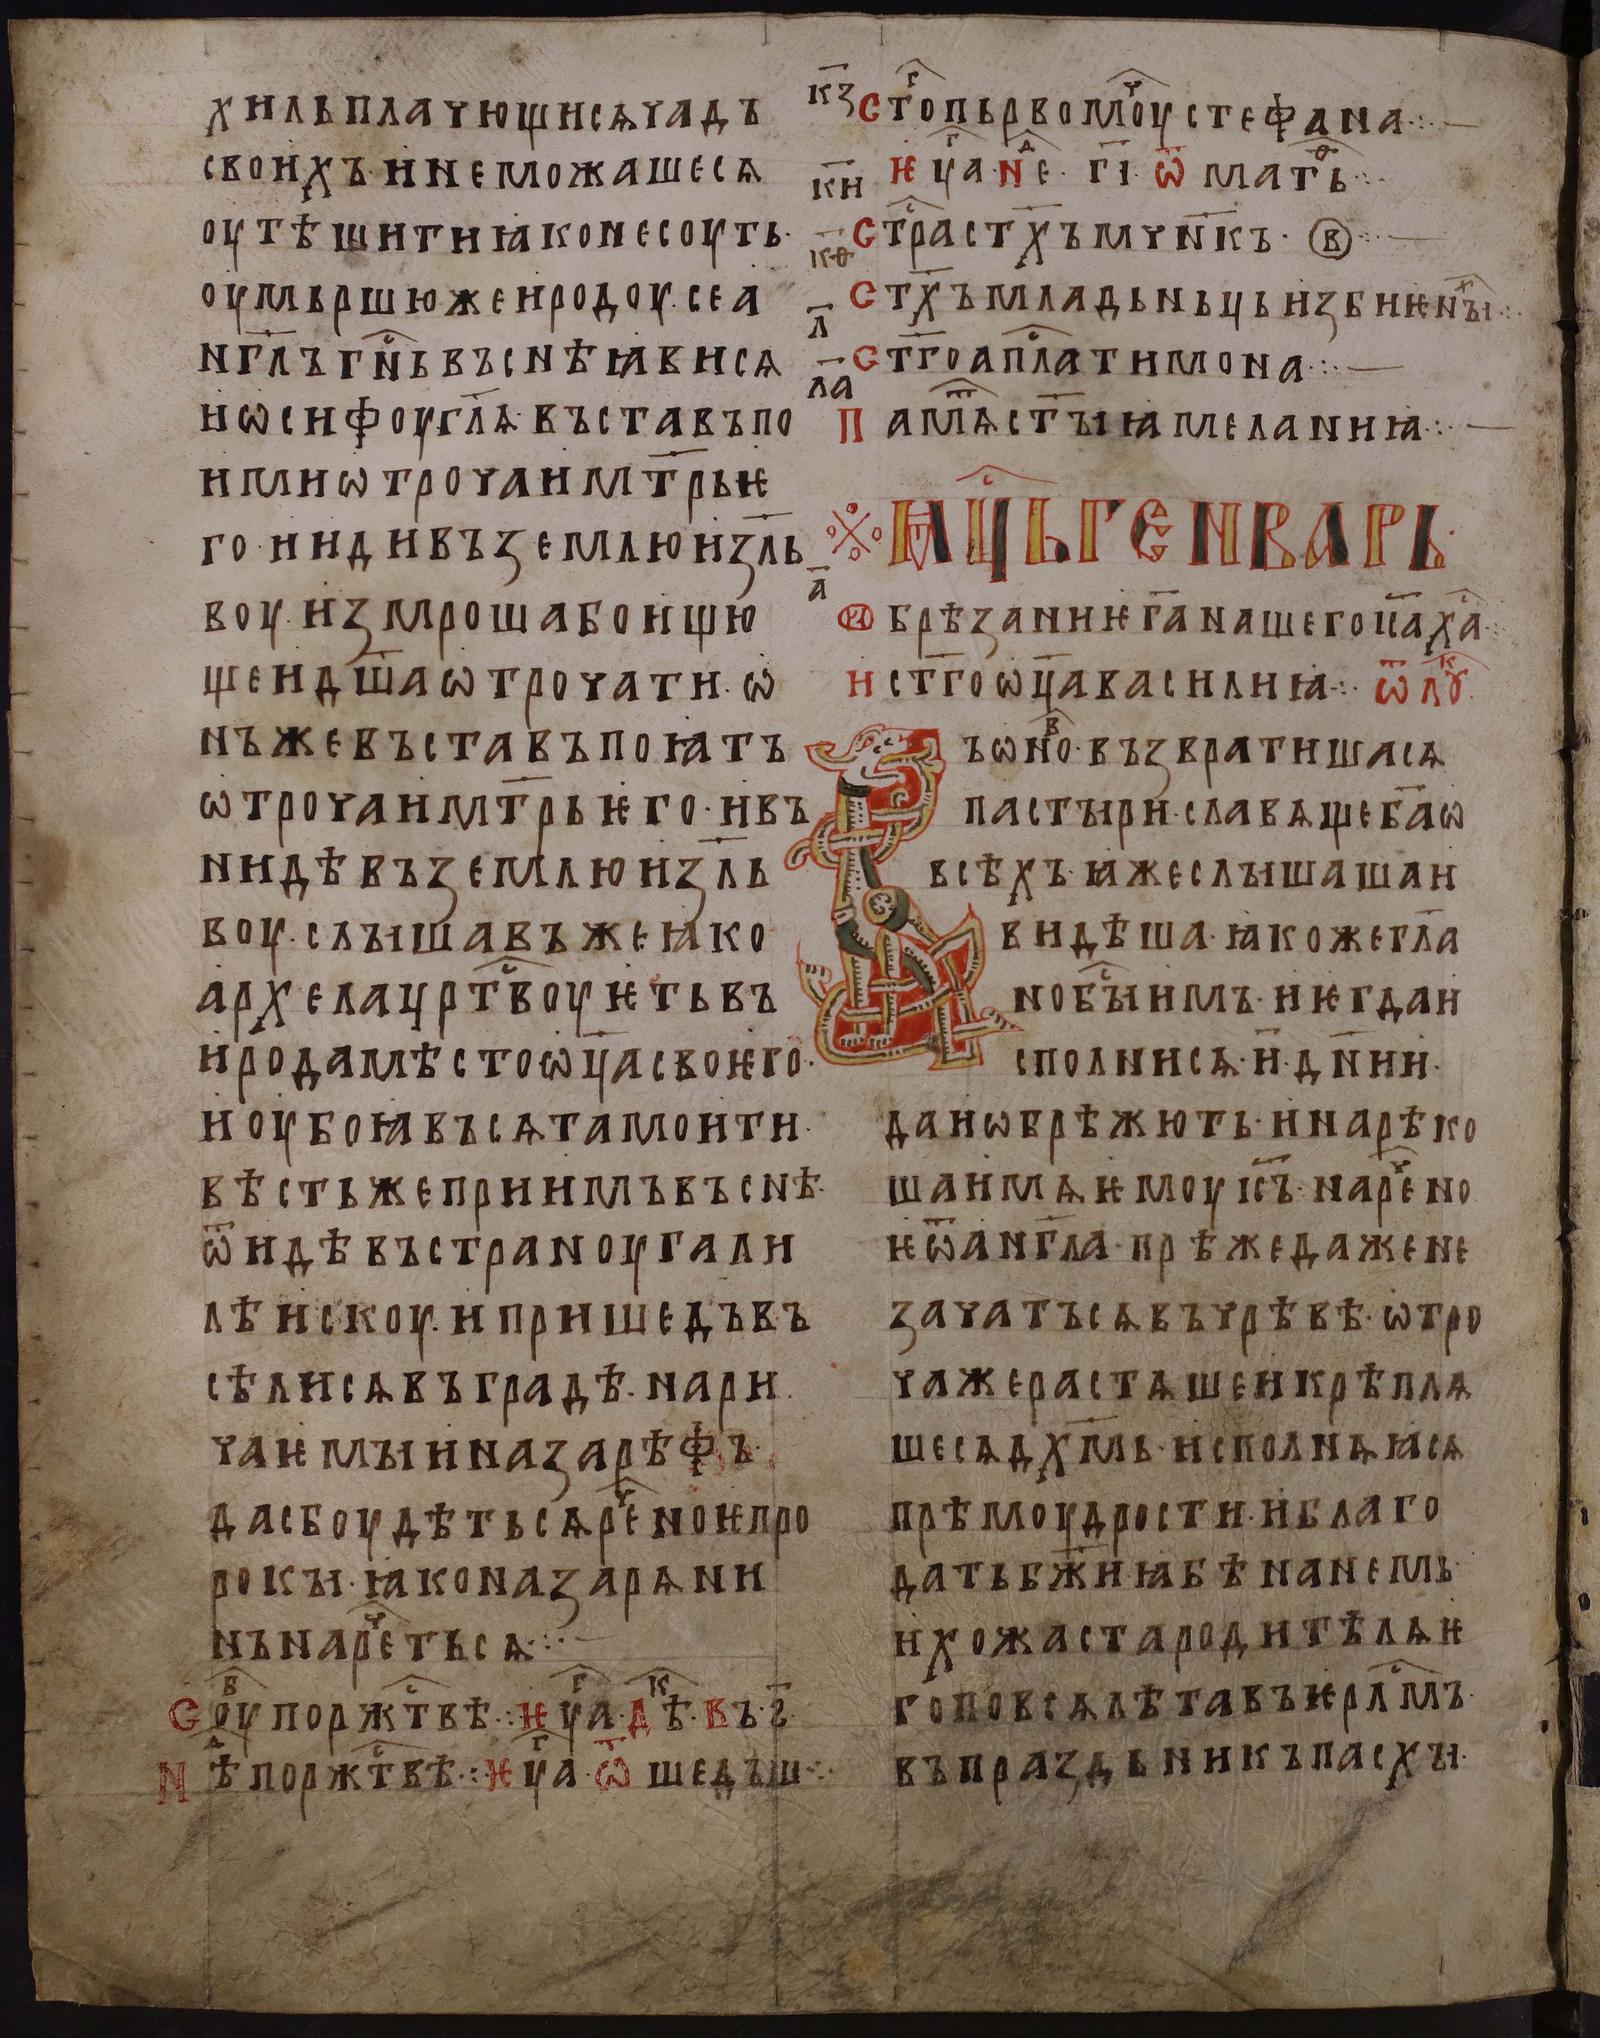 хиль плачющисѧ чадъ
своихъ· и не можашесѧ
оутѣшити ꙗко не соуть·
оумьршю же иродоу· се а
нг҃лъ гⷭ҇нь въ снѣ ꙗвисѧ
иѡсифоу гл҃ѧ· въставъ по
ими ѡтроча и мт҃рь ѥ
го· и иди въ землю изл҃ь
воу· измроша бо ищю
щеи дш҃а ѡтрочати· ѡ
нъ же въставъ поꙗтъ
ѡтроча и мт҃рь ѥго· и въ
ниде въ землю изл҃ь
воу· слышавъ же ꙗко
архелай црⷭ҇твоуѥть въ
ирода мѣсто ѡц҃а своѥго·
и оубоꙗвъсѧ тамо ити·
вѣсть же приимъ въ снѣ·
ѿиде въ страноу гали
лѣискоу· и пришедъ въ
сѣлисѧ въ градѣ· нари
чаѥмыи назарѣфъ·
да сбоудѣтьсѧ рⷱ҇еноѥ про
рокы· ꙗко назарѧни
нъ нарⷱ҇етьсѧ ·:·
Соуⷠ҇ по ржⷭ҇твѣ ·: ѥуⷢ҇а· дⷦ҇ѣ· въ· г҃·
Нⷣ҇ѣ по ржⷭ҇твѣ ·: ѥуⷢ҇а ѿшедъш ·:·
к҃з Стⷢ҇о пьрвомоуⷱ҇ стефана ·:·
к҃и ѥуⷢ҇а· нⷣ҇е· г҃і ѿ матⷴ҇ь ·:·
к҃ѳ Стрⷭ҇а ст҃хъ мчн҃къ· в ·:
л҃ Ст҃хъ младьньць избиѥныⷯ ·:·
л҃а Ст҃го апⷭ҇ла тимона ·:·
Памⷮ҇ѧ ст҃ыꙗ меланиꙗ ·:
мцⷭ҇ь генварь
а҃ ѡбрѣзаниѥ га҃ нашего іса҃ ха҃
и ст҃го ѡц҃а василиꙗ ·: ѿ лꙋⷦ҇
ъ ѡноⷡ҇· възвратишасѧ
пастыри· славѧще ба҃ ѡ
всѣхъ· ꙗже слышаша и
видѣша· ꙗкоже гл҃а
но быⷭ҇ имъ· и ѥгда и
сполнисѧ· и҃· дн҃ии·
да и ѡбрѣжють· и нарѣко
ша имѧ ѥмоу іс҃ъ· нарⷱ҇ено
ѥ ѿ анг҃ла· прѣже даже не
зачатъсѧ въ чрѣвѣ· ѡтро
ча же растѧше и крѣплѧ
шесѧ дх҃мь· исполнѧꙗсѧ
прѣмоудрости· и благо
дать бж҃иꙗ бѣ на немь·
и хожаста родитѣлѧ ѥ
го по всѧ лѣта въ ѥрлⷭ҇мъ·
въ праздьникъ пасхы·